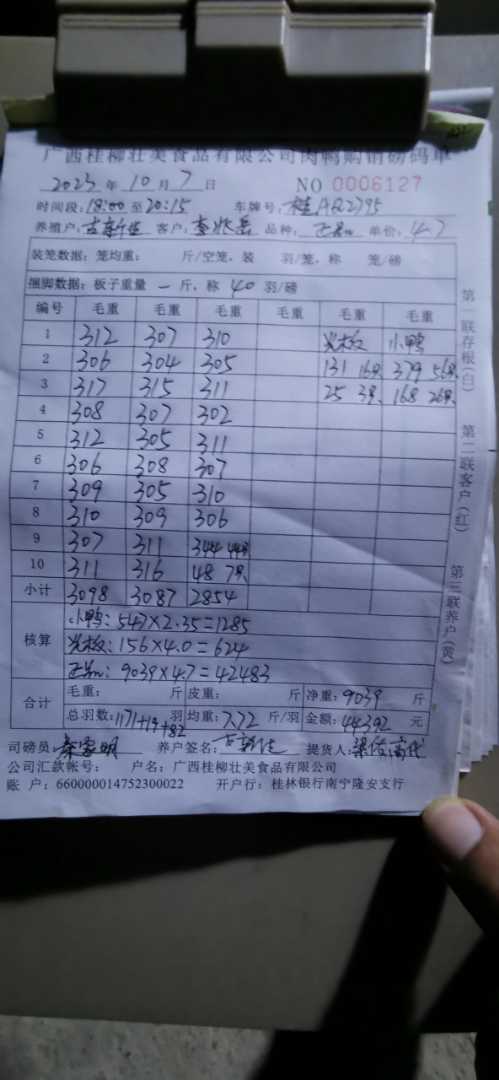 广西桂柳壮美食品有限公司肉鸭购销磅码单
2023 年 10 月 7 日 NO 0006127
时间段: 18:00 至 20:15 车牌号: 桂AQ2795
养殖户: 古新佳 客户: 品种: 正品 单价: 4.7
装笼数据: 笼均重: 斤/空笼, 装 羽/笼, 称 笼/磅
捆脚数据: 板子重量 一 斤, 称 40 羽/磅
编号 毛重 毛重 毛重 毛重 毛重 毛重
1 312 307 310 光板 小鸭
2 306 304 305 131 16只 379 56只
3 317 315 311 25 3只 168 26只
4 308 307 302
5 312 305 311
6 306 308 307
7 309 305 310
8 310 309 306
9 307 311 344 44只
10 311 316 48 7只
小计 3098 3087 2854
小鸭: 547×2.35=1285
核算 光板: 156×4.0=624
正品: 9039×4.7=42483
合计 毛重: 斤 皮重: 斤 净重: 9039 斤
总羽数: 1171+19+82 羽 均重: 7.72 斤/羽 金额: 44392 元
司磅员: 养户签名: 古新佳 提货人:
公司汇款帐号: 户名: 广西桂柳壮美食品有限公司
账 户: 660000014752300022 开户行: 桂林银行南宁隆安支行
第一联存根(白)
第二联客户(红)
第三联养户(黄)